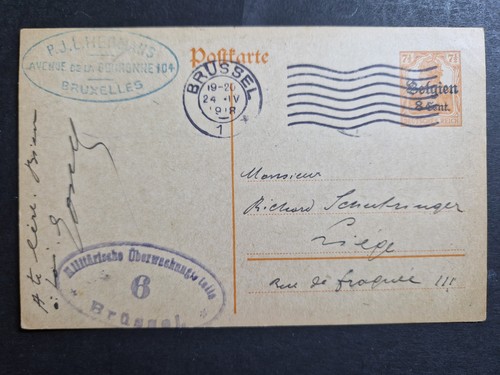 P.J.L. HERMANS
AVENUE DE LA COURONNE 104
BRUXELLES
Postkarte
BRÜSSEL
19-20
24 IV
1918
1
7½ 7½
Belgien
8 Cent.
A te lire. Bien
Militärische Überwachungsstelle
6
Brüssel
Monsieur
Richard
Liége
Rue de 111